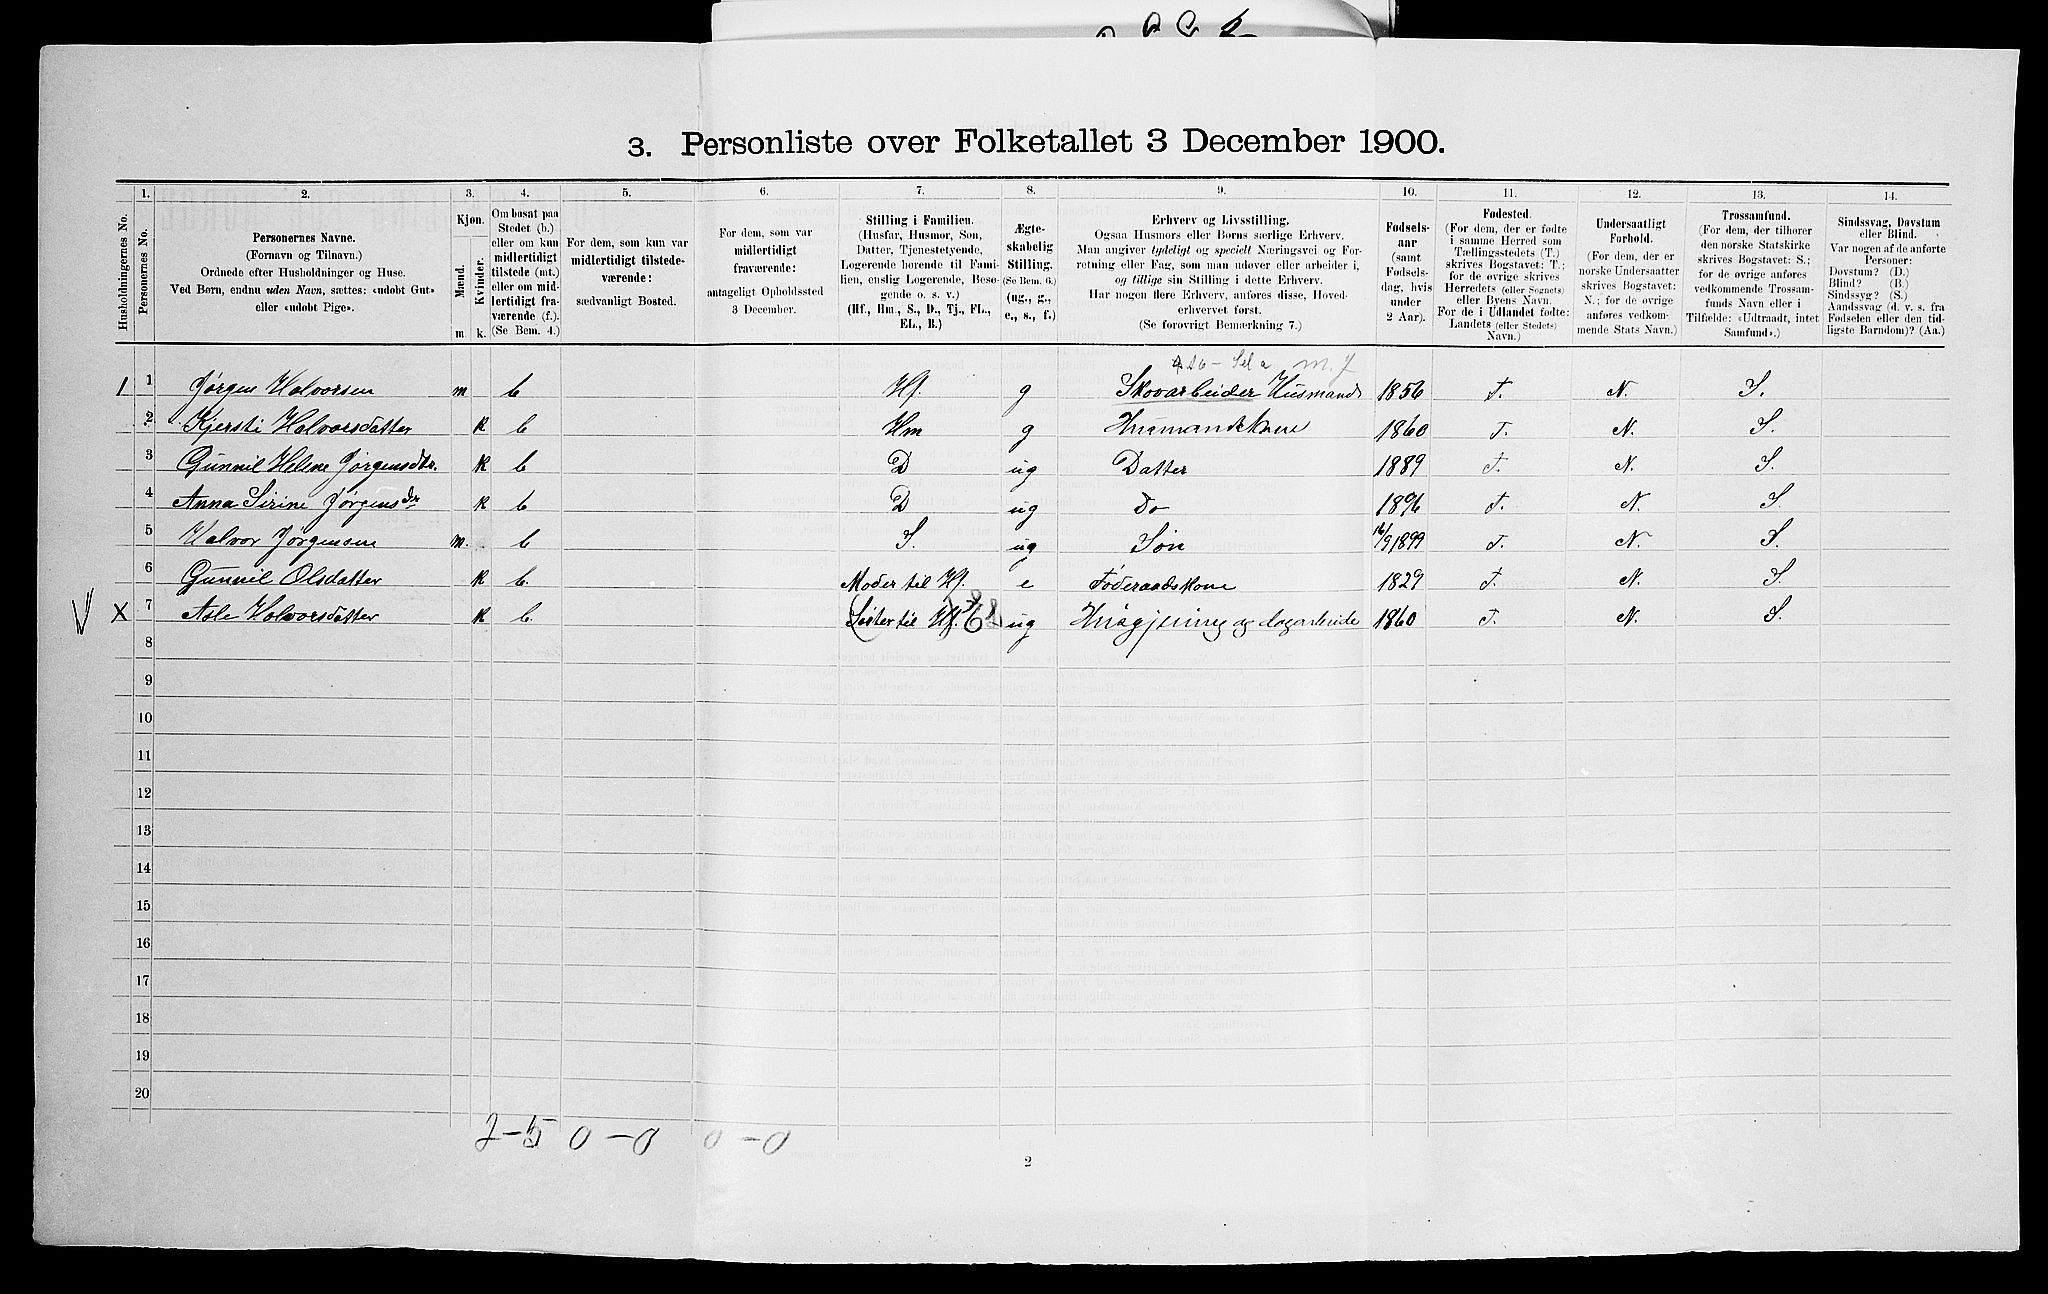 3. Personliste over Folketallet 3 December 1900.
1. 2. 3. 4. 5. 6. 7. 8. 9. 10. 11. 12. 13. 14.
Husholdningernes No.
Personernes No.
Personernes Navne.
(Fornavn og Tilnavn.)
Ordnede efter Husholdninger og Huse.
Ved Børn, endnu uden Navn, sættes: «udøbt Gut»
eller «udøbt Pige».
Kjøn.
Mænd.
Kvinder.
m. k.
Om bosat paa
Stedet (b.)
eller om kun
midlertidigt
tilstede (mt.)
eller om mid-
lertidigt fra-
værende (f.).
(Se Bem. 4.)
For dem, som kun var
midlertidigt tilstede-
værende:
sædvanligt Bosted.
For dem, som var
midlertidigt
fraværende:
antageligt Opholdssted
3 December.
Stilling i Familien.
(Husfar, Husmor, Søn,
Datter, Tjenestetyende,
Logerende hørende til Fami-
lien, enslig Logerende, Besø-
gende o. s. v.)
(Hf., Hm., S., D., Tj., FL.,
EL., B.)
Ægte-
skabelig
Stilling.
(Se Bem. 6.)
(ug., g.,
e., s., f.)
Erhverv og Livsstilling.
Ogsaa Husmors eller Børns særlige Erhverv.
Man angiver tydeligt og specielt Næringsvei og For-
retning eller Fag, som man udøver eller arbeider i,
og tillige sin Stilling i dette Erhverv.
Har nogen flere Erhverv, anføres disse, Hoved-
erhvervet først.
(Se forøvrigt Bemærkning 7.)
Fødsels-
aar
(samt
Fødsels-
dag, hvis
under
2 Aar).
Fødested.
(For dem, der er fødte
i samme Herred som
Tællingsstedets (T.)
skrives Bogstavet: T.;
for de øvrige skrives
Herredets (eller Sognets)
eller Byens Navn.
For de i Udlandet fødte:
Landets (eller Stedets)
Navn.)
Undersaatligt
Forhold.
(For dem, der er
norske Undersaatter
skrives Bogstavet:
N.; for de øvrige
anføres vedkom-
mende Stats Navn.)
Trossamfund.
(For dem, der tilhører
den norske Statskirke
skrives Bogstavet: S.;
for de øvrige anføres
vedkommende Trossam-
funds Navn eller i
Tilfælde: «Udtraadt, intet
Samfund».)
Sindssvag, Døvstum
eller Blind.
Var nogen af de anførte
Personer:
Døvstum? (D.)
Blind? (B.)
Sindssyg? (S.)
Aandssvag (d. v. s. fra
Fødselen eller den tid-
ligste Barndom)? (Aa.)
1 1 Jørgen Halvorsen m b Hf. g Skovarbeider Husmand 1856 T. N. S.
2 Kjersti Halvorsdatter k b Hm g Husmandskone 1860 T. N. S.
3 Gunnil Helene Jørgensdtr. k b D ug Datter 1889 T. N. S.
4 Anna Sirine Jørgensdr k b D ug Do 1896 T. N. S.
5 Halvor Jørgensen m. b S. ug Søn 16/9 1899 T. N. S.
6 Gunnil Olsdatter k b. Moder til Hf. e Føderaadskone 1829 T. N. S.
X 7 Asle Halvorsdatter k b. Søster til Hf. ug Husgjerning og dagarbeide 1860 T. N. S.
8
9
10
11
12
13
14
15
16
17
18
19
20
2-5 0-0 0-0
2